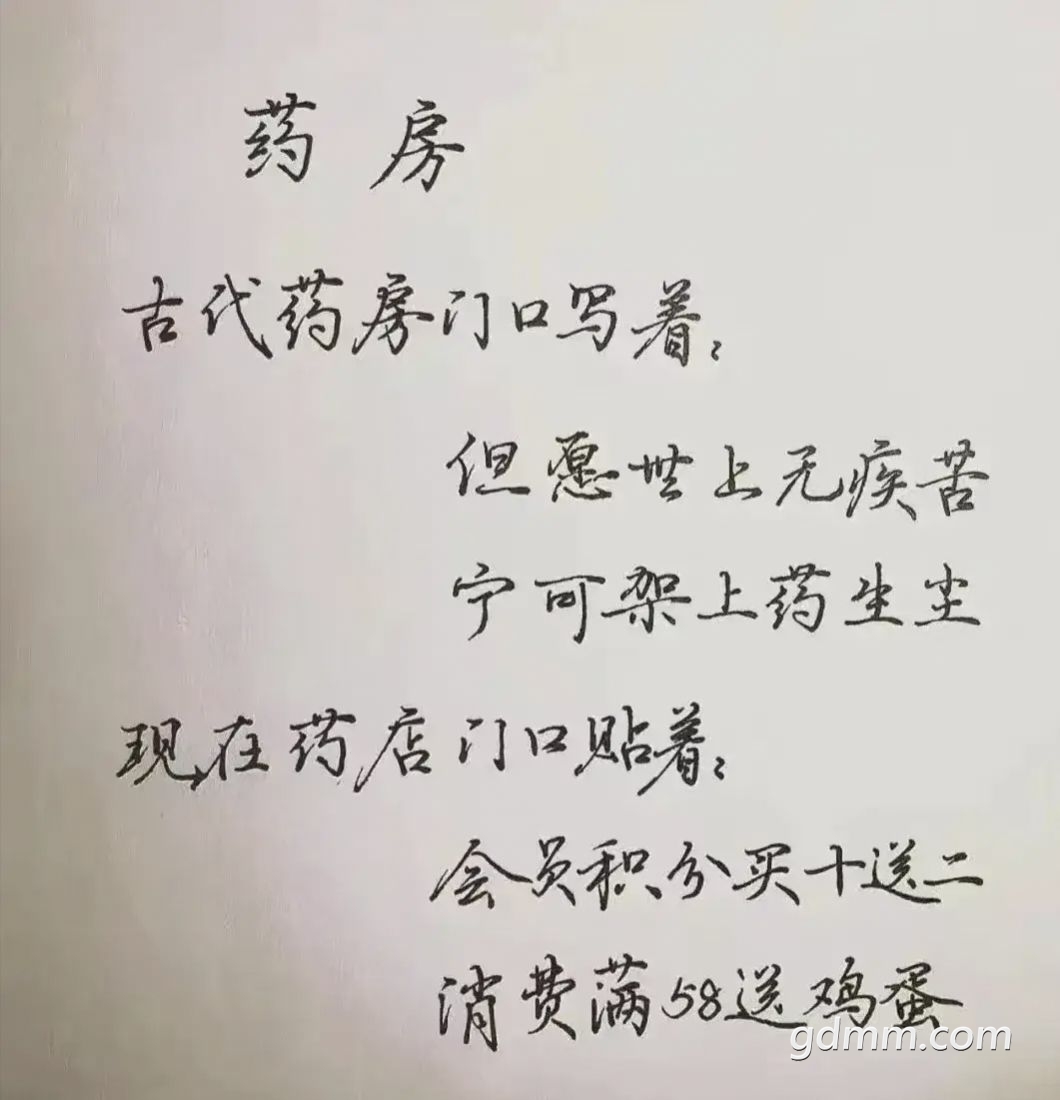 药房
古代药房门口写着：
但愿世上无疾苦
宁可架上药生尘
现在药店门口贴着：
会员积分买十送二
消费满58送鸡蛋
gdmm.com